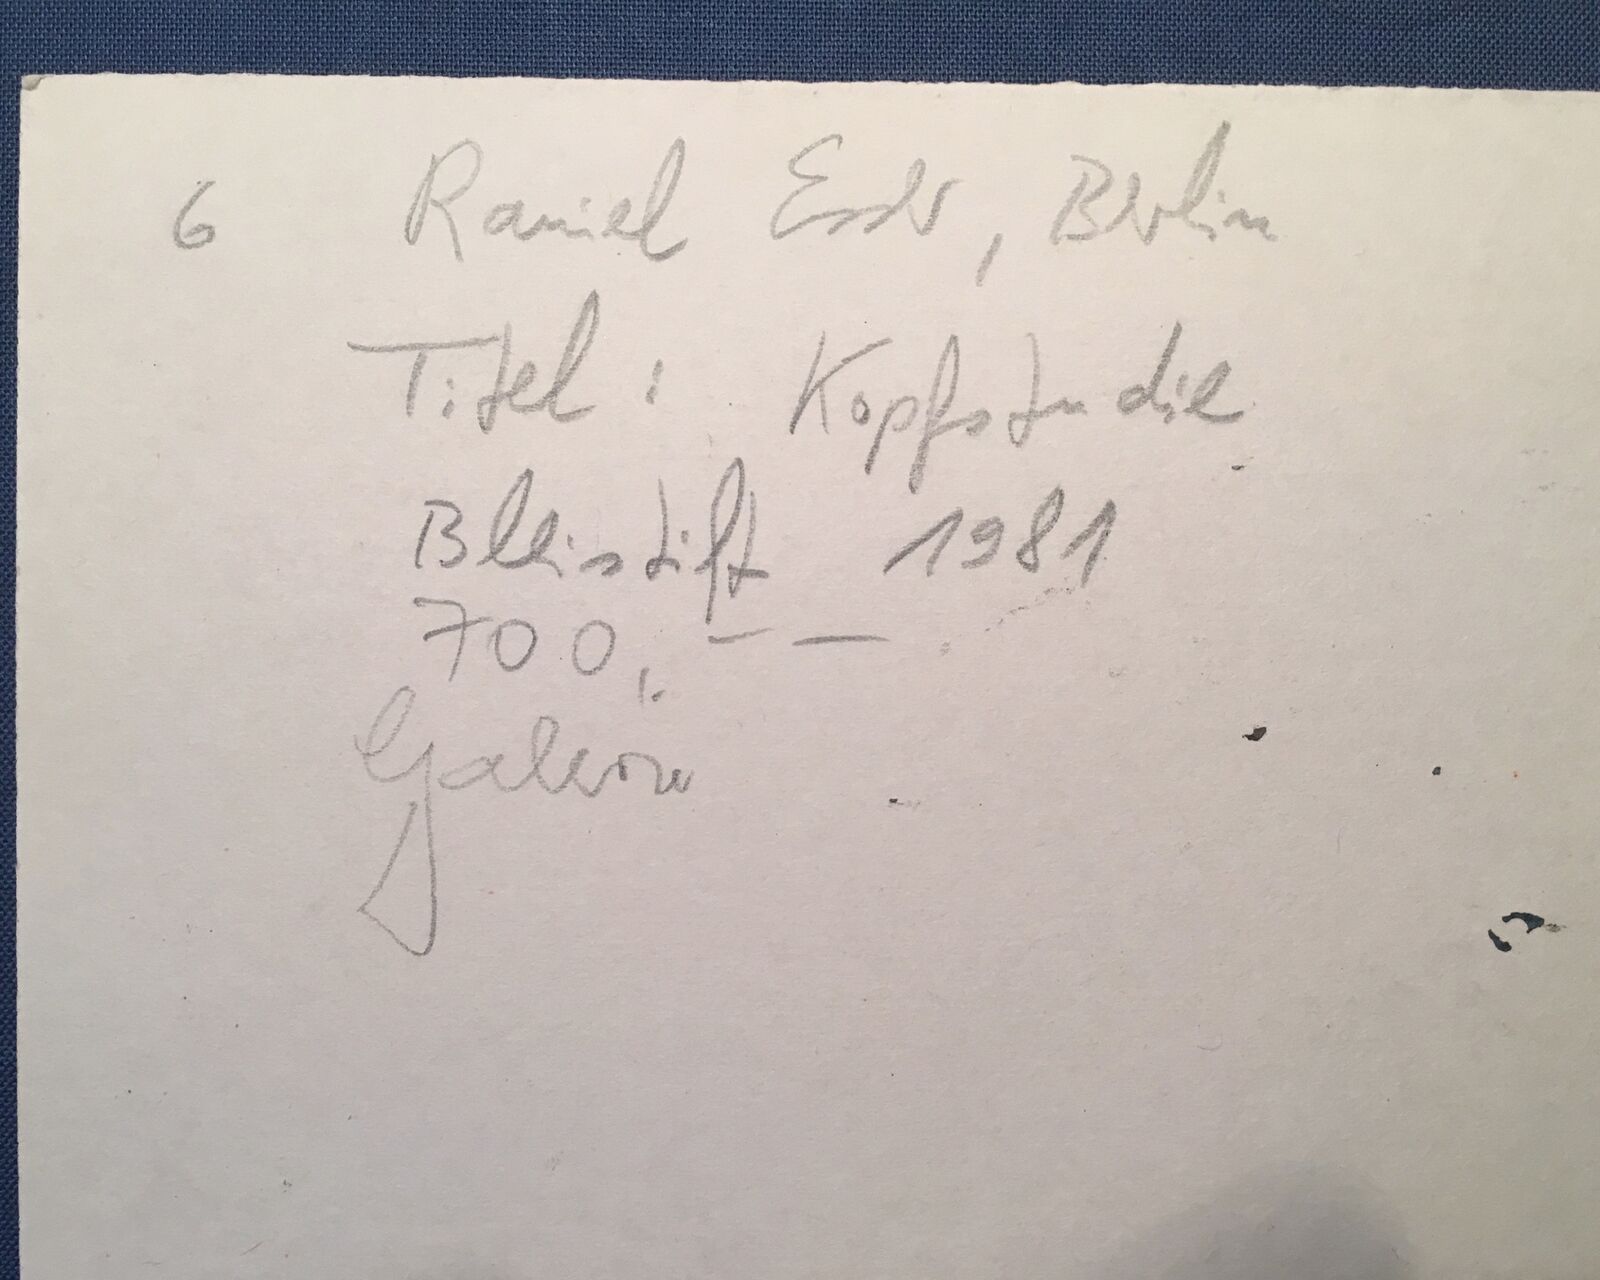 6 Raniel Essler, Berlin
Titel: Kopfstudie
Bleistift 1981
700,--
Galerie